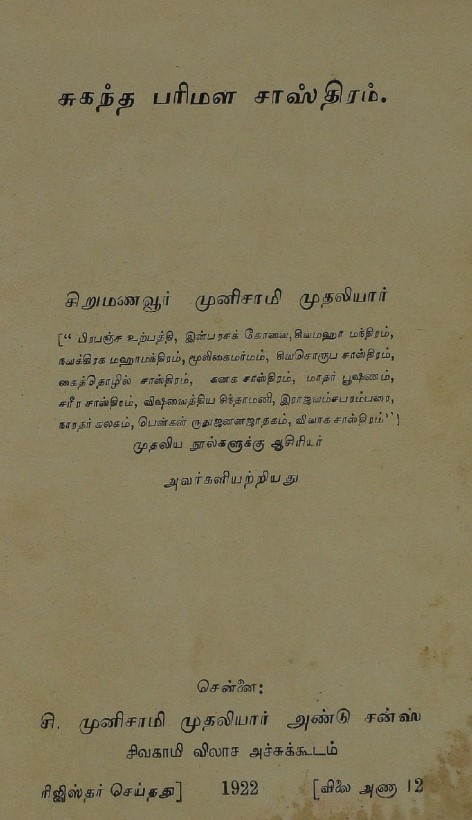 சுகந்த பரிமள சாஸ்திரம்.
சிறுமணவூர் முனிசாமி முதலியார்
[“ பிரபஞ்ச உற்பத்தி, இன்பரசக் கோவை, சிவமஹா மந்திரம்,
நவக்கிரக மஹாமந்திரம், மூலிகைமர்மம், சிவசொருப சாஸ்திரம்,
கைத்தொழில் சாஸ்திரம், கனக சாஸ்திரம், மாதர் பூஷணம்,
சரீர சாஸ்திரம், விஷவைத்திய சிந்தாமணி, இராஜவம்சபரம்பரை,
நாரதர் கலகம், பெண்கள் ருதுஜனனஜாதகம், விவாக சாஸ்திரம்”]
முதலிய நூல்களுக்கு ஆசிரியர்
அவர்களியற்றியது
சென்னை:
சி. முனிசாமி முதலியார் அண்டு சன்ஸ்
சிவகாமி விலாச அச்சுக்கூடம்
ரிஜிஸ்தர் செய்தது] 1922 [விலை அணா 12